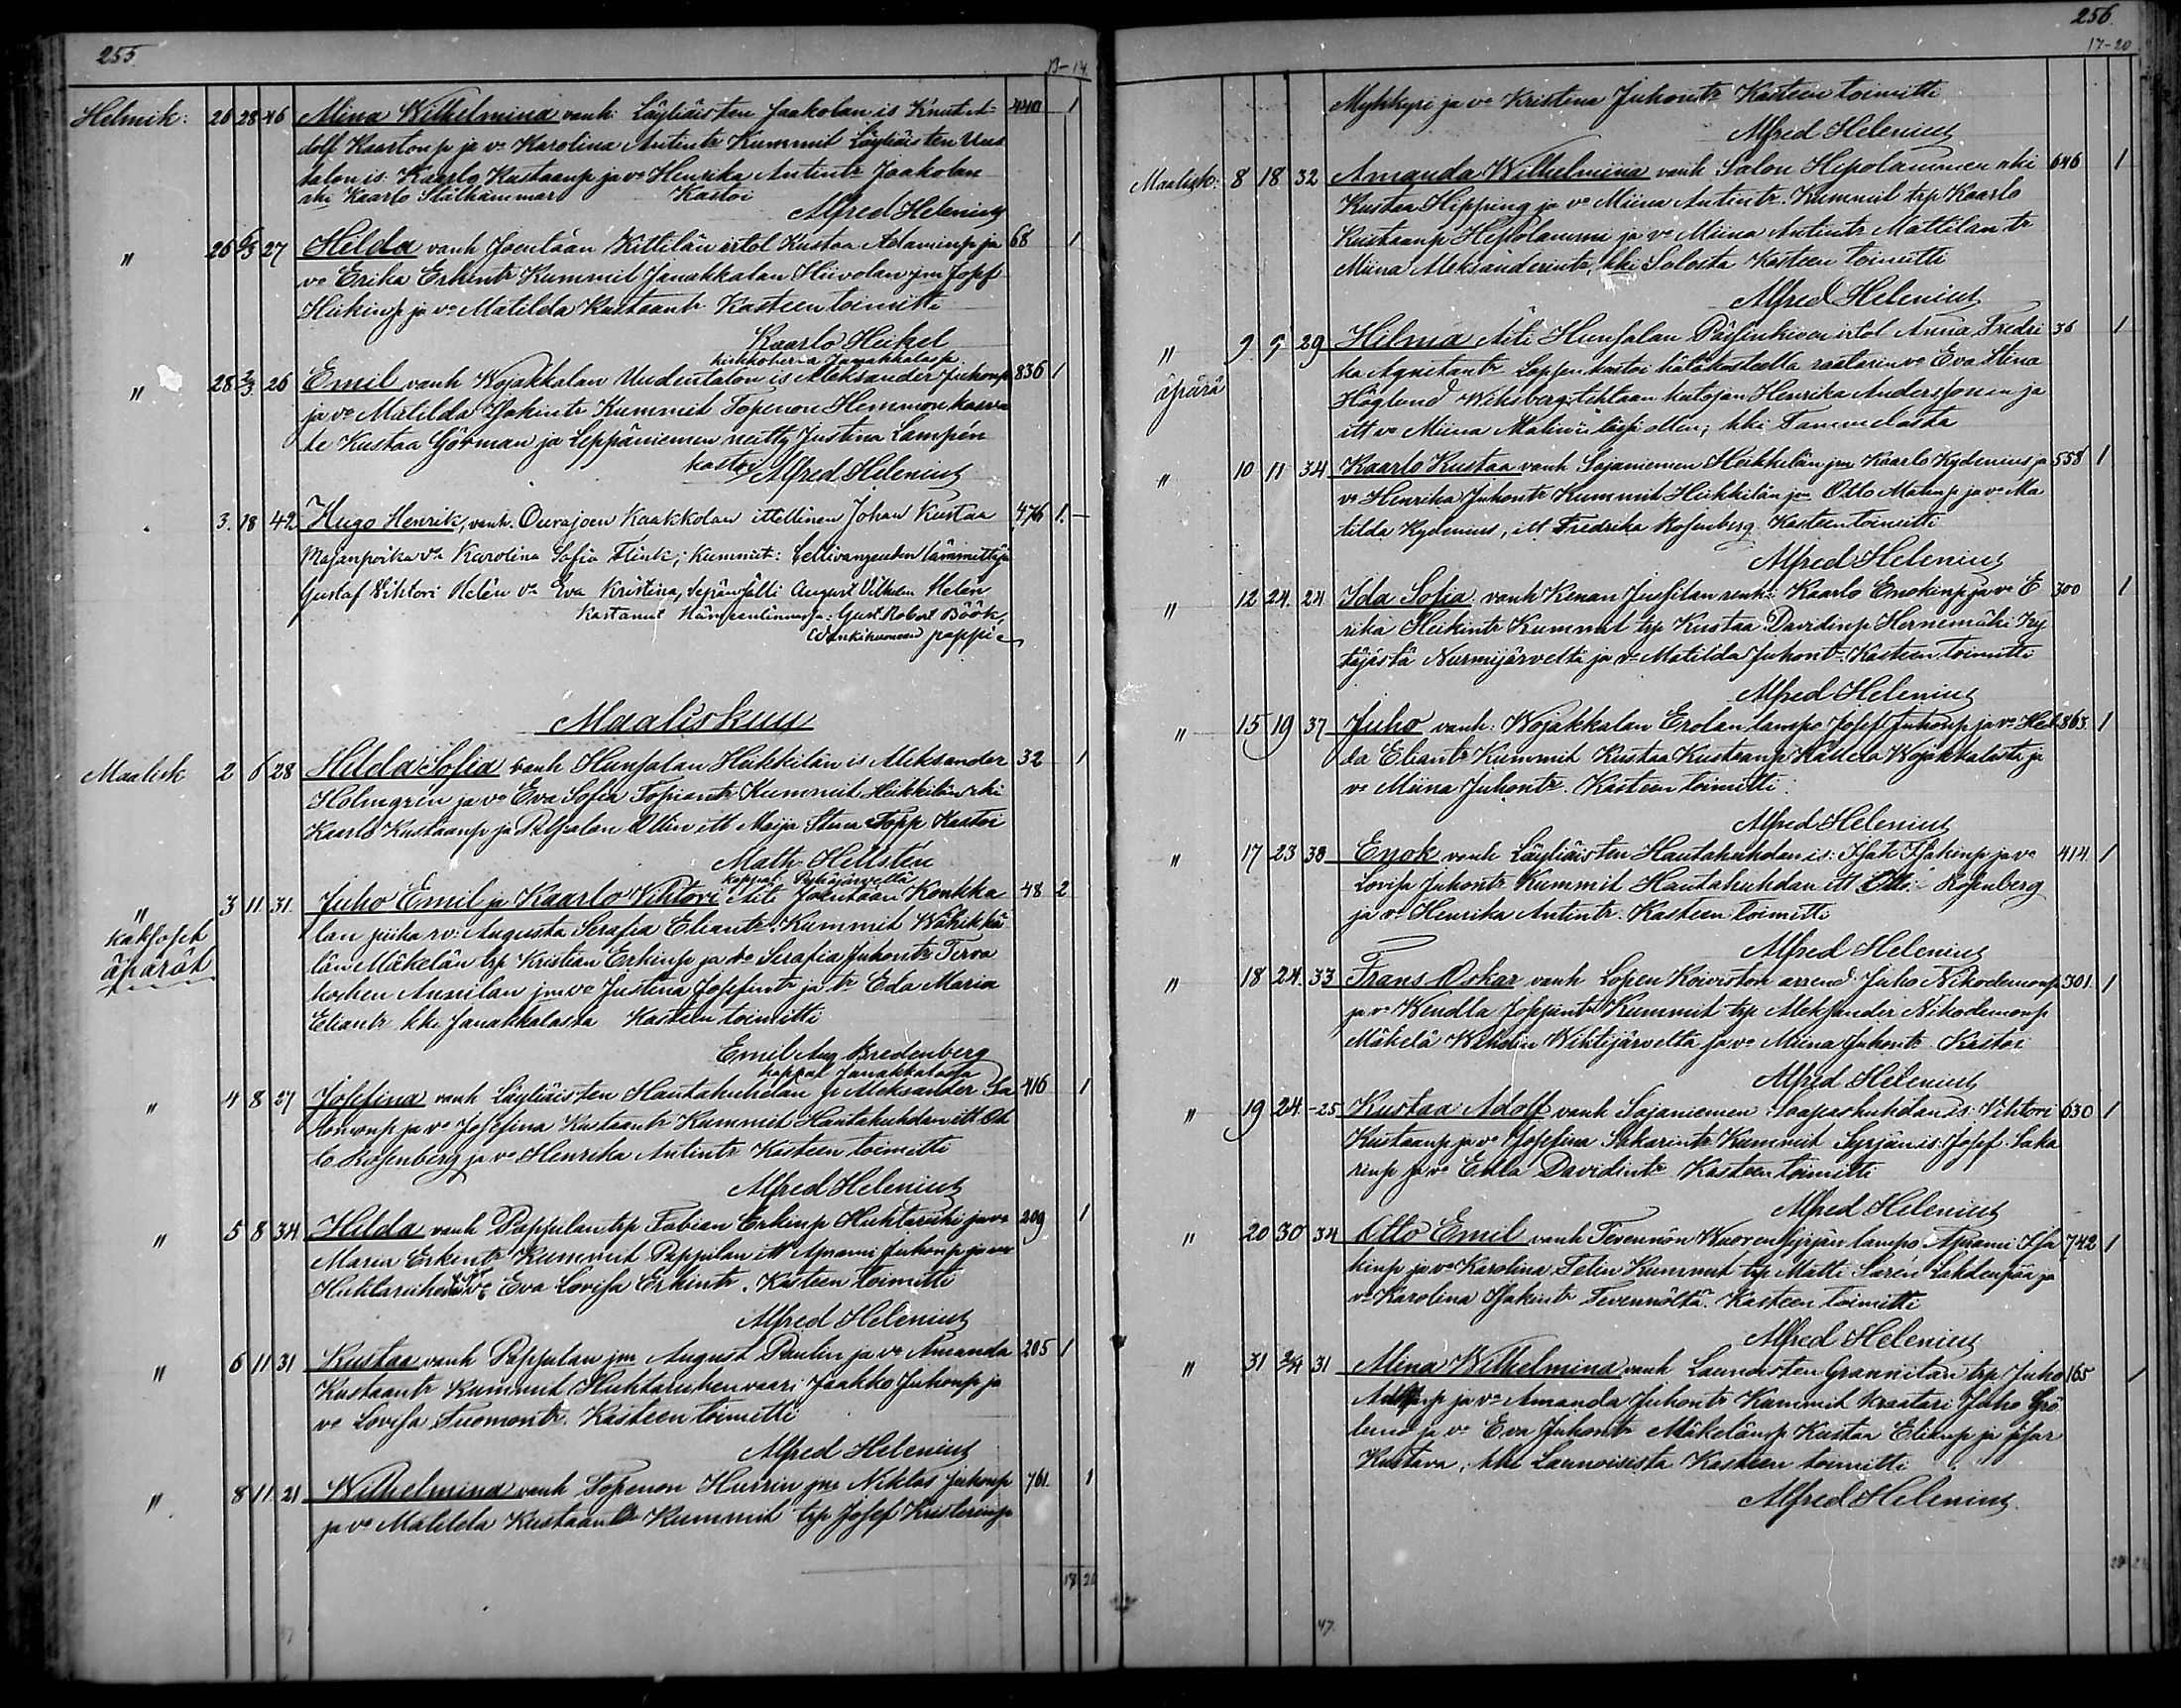 255.
13-14.
Helmik: 26 28 46 Miina Wilhelmina vanh: Läyliäisten Jaakolan is Knut A- 440 1
dolf Kaarlonp ja vo Karolina Antintr Kummit Läyliäisten Uus
talon is: Kaarlo Kustaanp ja vo Henrika Antintr Jaakolan
rki Kaarlo Stålhammar Kastoi
Alfred Helenius
" 26 6/3 27 Helda vanh Joentaan Kittilän irtol Kustaa Adaminp ja 68 1
vo Erika Erkintr Kummit Janakkalan Hiivolan jm Josef
Heikinp ja vo Matilda Kustaantr Kasteen toimitti
Kaarlo Heikel
kirkkoherra Janakkalasp.
" 28 2/3 26 Emil vanh Wojakkalan Uudentalon is Aleksander Juhonp 836 1
ja vo Matilda Isakintr Kummit Topenon Hemmon kasva
te Kustaa Görman ja Leppäniemen neitty Justina Lampén
kastoi Alfred Helenius
3. 18 42 Hugo Henrik, vanh. Ourajoen Kaakkolan ittellinen Johan Kustaa 476 1.
Majanpoika vo Karolina Sofia Flink; Kummit: Cellivangeuden lämmittäjä
Gustaf Viktori Helén vo Eva Kristina, Sepänsälli August Vilhelm Helén
Kastanut Hämeenlinnassa: Gust. Robert Böök,
Wankihuoneen pappi
Maaliskuu
Maalisk 2 6 28 Hilda Sofia vanh Hunsalan Heikkilän is Aleksander 32 1
Holmgrén ja vo Eva Sofia Topiantr Kummit Heikkilän rki
Kaarlo Kustaanp ja Ollin itt Maija Stina Topp Kastoi
Math. Hellstén
kappal. Pyhäjärveltä
" 3 11 31. Juho Emil ja Kaarlo Wihtori Äiti Joentaan Konkka 48 2
kaksoset
äpärät
lan piika rv: Augusta Serafia Eliantr. Kummit Wähikkä
län Mäkelän trp Kristian Erkinp ja vo Serafia Juhontr Terva
kosken Anttilan jm vo Justina Josefintr ja tr Eda Maria
Eliantr kki Janakkalasta Kasteen toimitti
Emil Aug Bredenberg
kappal Janakkalassa
" 4 8 27 Josefina vanh Läyliäisten Hautahuhdan p Aleksander Sa 416 1
lomonp ja vo Josefina Kustaantr Kummit Hautahuhdan itt Ot
to Rosenberg ja vo Henrika Antintr Kasteen toimitti
Alfred Helenius
" 5 8 34 Hilda vanh Pappilan trp Fabian Erkinp Huhtariihi ja vo 209 1
Maria Erkintr Kummit Pappilan itt Aprami Juhonp ja
Huhtariihen vo Eva Lovisa Erkintr. Kasteen toimitti
Alfred Helenius
" 6 11 31 Kustaa vanh Pappilan jm August Paulin ja vo Amanda 205 1
Kustaantr Kummit Huhtariihen vaari Jaakko Juhonp ja
vo Lovisa Tuomontr. Kasteen toimitti
Alfred Helenius
" 8 11 21 Wilhelmina vanh Topenon Hurrin jm Niklas Juhonp 761. 1
ja vo Matilda Kustaantr Kummit trp Josef Kristerinp
18 20
256.
17-20
Myhkyri ja vo Kristina Juhontr Kasteen toimitti
Alfred Helenius
Maalisk: 8 18 32 Amanda Wilhelmiina vanh Salon Hipolammen rki 646 1
Kustaa Hipping ja vo Miina Antintr. Kummit trp Kaarlo
Kustaanp Hipolammi ja vo Miina Antintr Mattilan tr
Miina Aleksanderintr, kki Salosta Kasteen toimitti
Alfred Helenius
" 9. 9 29 Hilma Äiti Hunsalan irtol Anna Fredri 36 1
äpärä
ka Agnetantr Lapsen kastoi hätäkasteella räätärin vo Eva Stina
Höglund Wiksberg tehtaan hutojan Henrika Anderssonin ja
itt vo Miina Malinin läsnä ollen, kki Tammelasta
" 10 11 34 Kaarlo Kustaa vanh Sajaniemen Heikkilän jm Kaarlo Kydenius ja 558 1
vo Henrika Juhontr Kummit Heikkilän jm Otto Matinp ja vo Ma
tilda Kydenius, itt Fredrika Rosenberg Kasteen toimitti
Alfred Helenius
" 12 24. 24 Ida Sofia vanh Kenan Jussilan renki Kaarlo Enokinp ja vo E 300 1
rika Heikintr Kummit trp Kustaa Davidinp Hernemäki Ky
täjästä Nurmijärveltä ja vo Matilda Juhontr Kasteen toimitti
Alfred Helenius
" 15 19 37 Juho vanh: Wojakkalan Erolan lampo Josef Juhonp ja vo Hel 863. 1
da Eliantr Kummit Kustaa Kustaanp Wojakkalasta ja
vo Miina Juhontr. Kasteen toimitti
Alfred Helenius
" 17 23 38 Enok vanh Läyliäisten Hautahuhdan is: Isak Isakinp ja vo 414. 1
Lovisa Juhontr Kummit Hautahuhdan itt Otto Rosenberg
ja vo Henrika Antintr. Kasteen toimitti
Alfred Helenius
" 18 24. 33 Frans Oskar vanh Lopen Koiviston arrend: Juho Nikodemonp 301. 1
ja vo Wendla Josefintr Kummit trp Aleksander Nikodemonp
Mäkelä Wihtijärveltä ja vo Miina Juhontr Kastoi
Alfred Helenius
" 19 24. -25 Kustaa Adolf vanh Sajaniemen Saapashuhdan is: Vihtori 630 1
Kustaanp ja vo Josefina Sakarintr Kummit Syrjän is: Josef Saka
rinp ja vo Eula Davidintr Kasteen toimitti
Alfred Helenius
" 20 30 34 Otto Emil vanh Tevennön Wuorensyrjän lampo Aprami Isa 742 1
kinp ja vo Karolina Telin Kummit trp Matti Sarén Lahdenpää ja
vo Karolina Isakintr Tevennöltä. Kasteen toimitti
Alfred Helenius
" 31 2/4 31 Miina Wilhelmina vanh Launoisten Grannilan trp Juho 165 1
ja vo Amanda Juhontr Kummit kraatari Juho Grö
lund ja vo Eva Juhontr Mäkelän p Kustaa Elianp ja sisar
Kustava, kki Launoisista Kasteen toimitti
Alfred Helenius.
47.